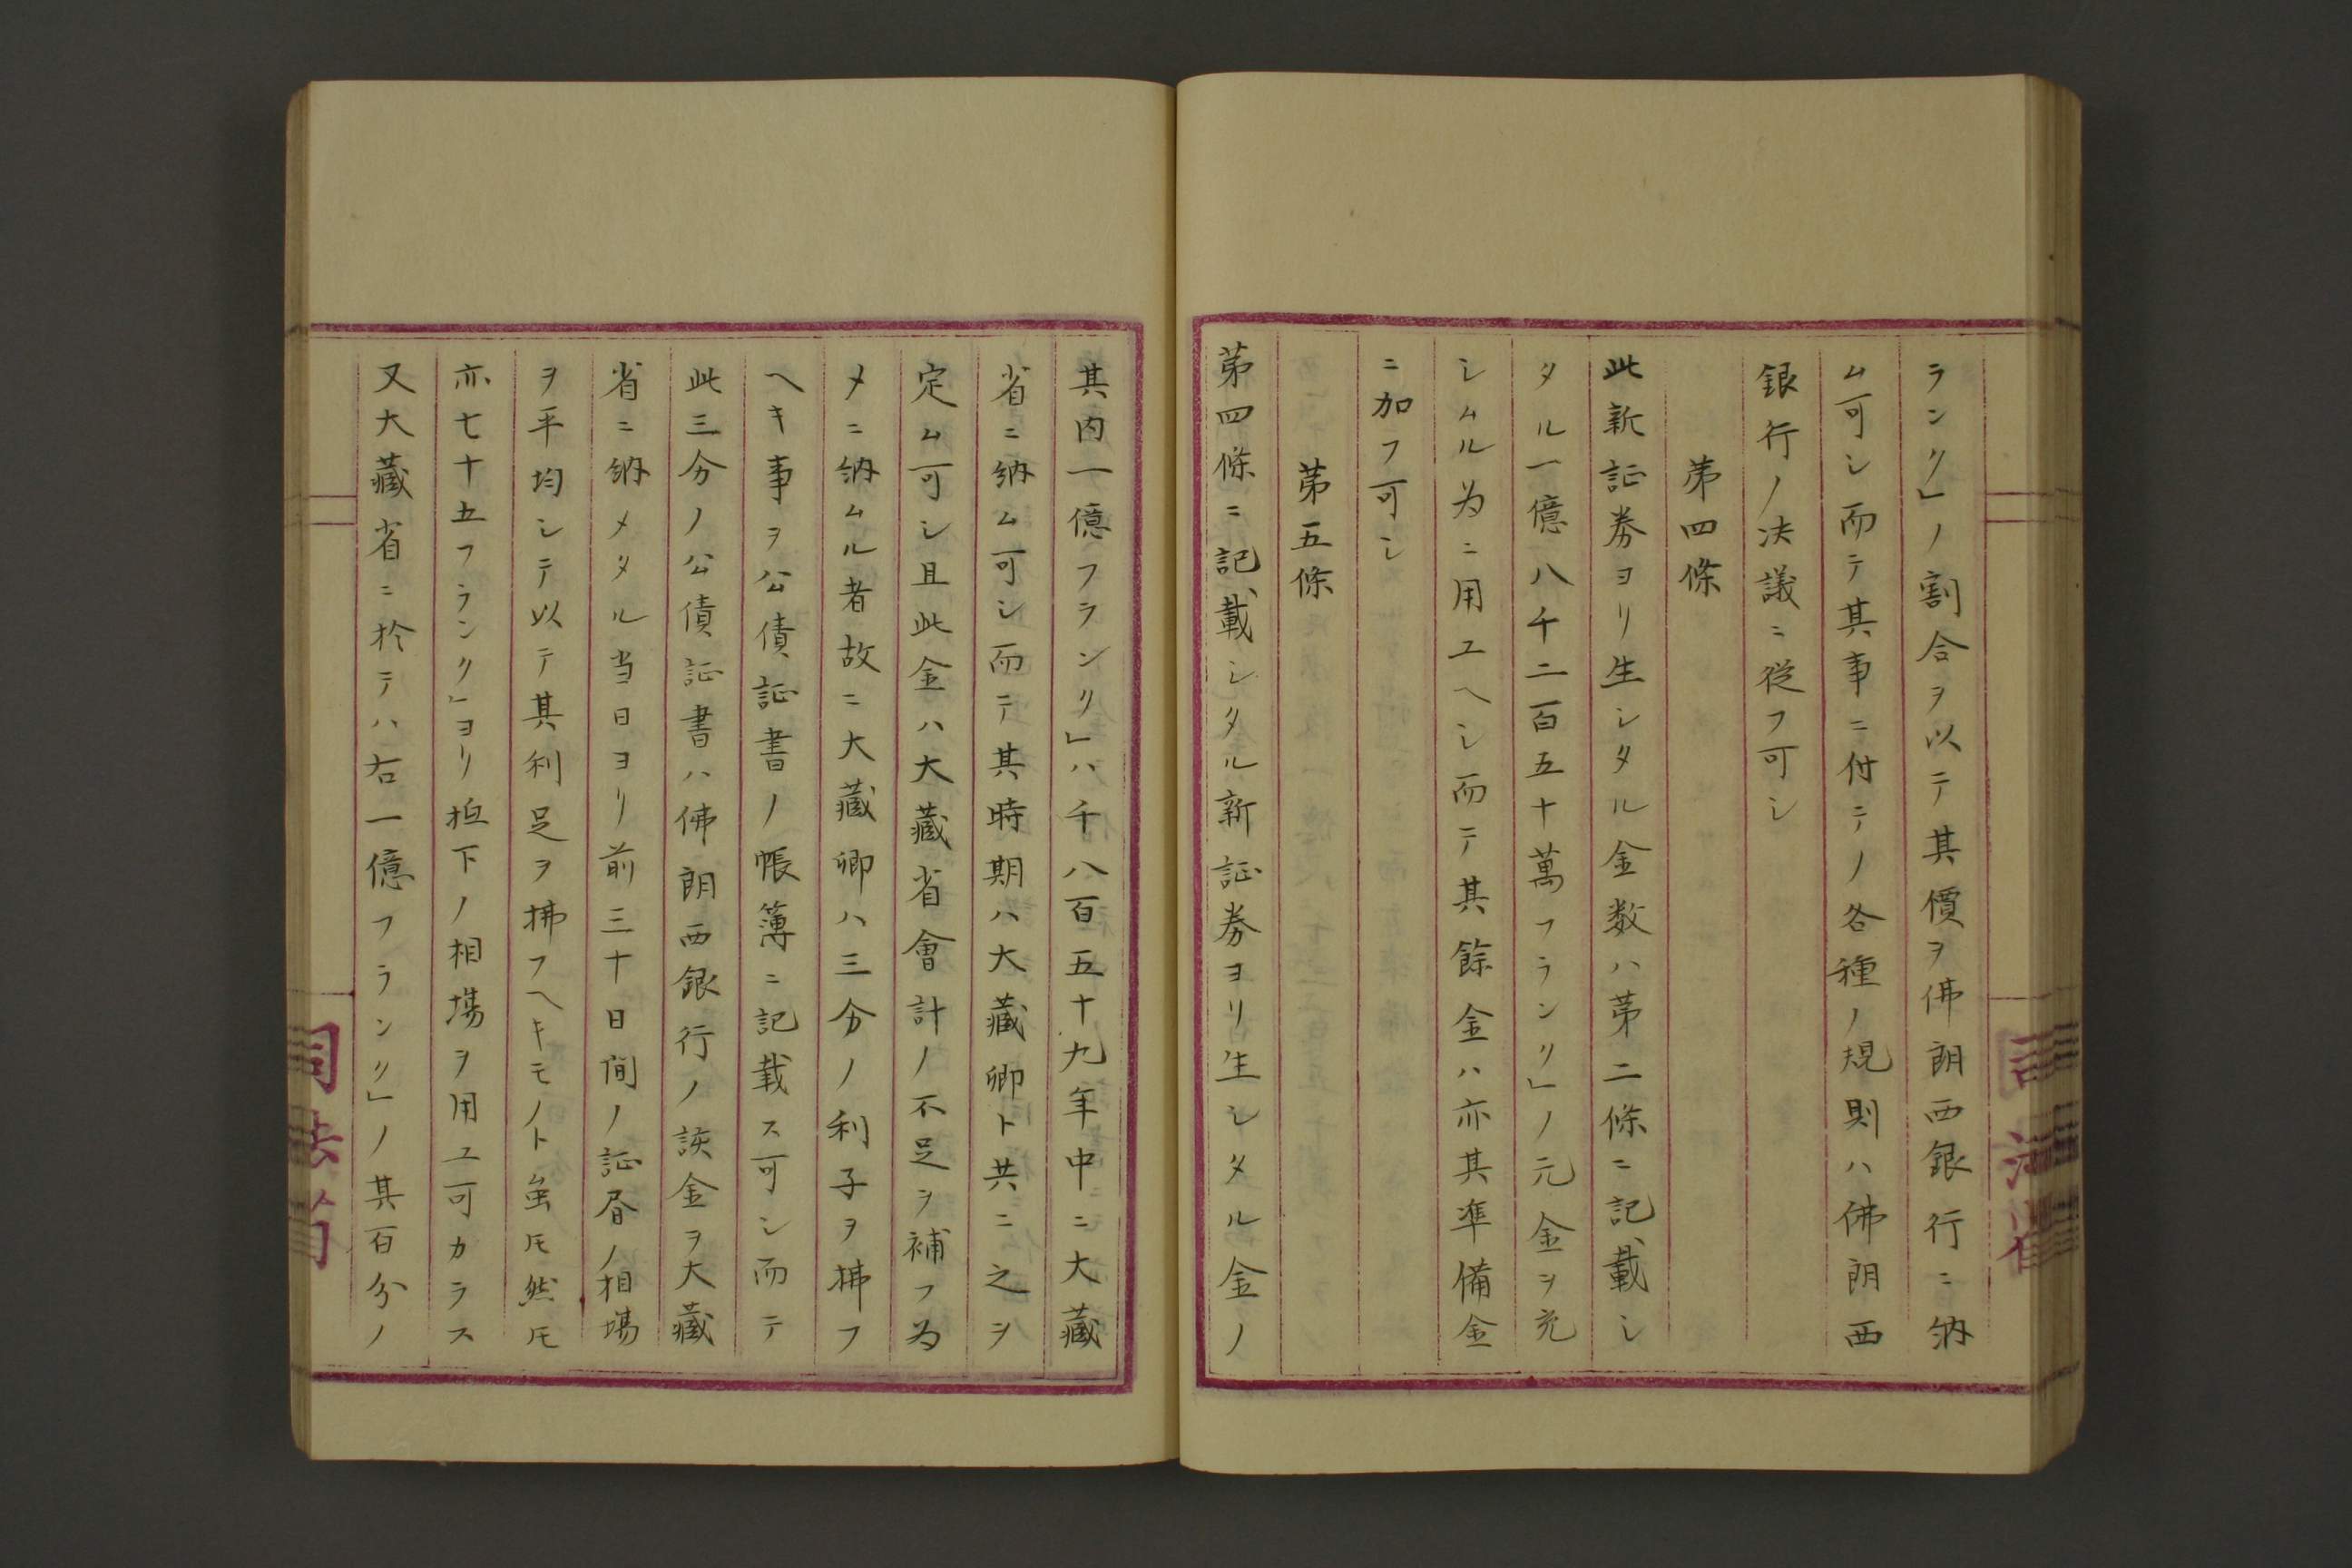 ランク」ノ割合ヲ以テ其價ヲ佛朗西銀行ニ納
ム可シ而テ其事ニ付テノ各種ノ規則ハ佛朗西
銀行ノ决議ニ從フ可シ
第四條
此新証券ヨリ生シタル金数ハ第二條ニ記載シ
タル一億八千二百五十萬フランク」ノ元金ヲ充
シムル为ニ用ユヘシ而テ其餘金ハ亦其凖備金
ニ加フ可シ
第五條
第四條ニ記載シタル新証券ヨリ生シタル金ノ
其内一億フランク」ハ千八百五十九年中ニ大藏
省ニ納ム可シ而テ其時期ハ大藏卿ト共ニ之ヲ
定ム可シ且此金ハ大藏省會計ノ不足ヲ補フ为
メニ納ムル者故ニ大藏卿ハ三分ノ利子ヲ拂フ
ヘキ事ヲ公債証書ノ帳簿ニ記載ス可シ而テ
此三分ノ公債証書ハ佛朗西銀行ノ該金ヲ大藏
省ニ納メタル当日ヨリ前三十日间ノ証昏ノ相場
ヲ平均シテ以テ其利足ヲ拂フヘキモノト虽𪜈然𪜈
亦七十五フランク」ヨリ担下ノ相場ヲ用ユ可カラス
又大藏省ニ於テハ右一億フランク」ノ其百分ノ
司法省